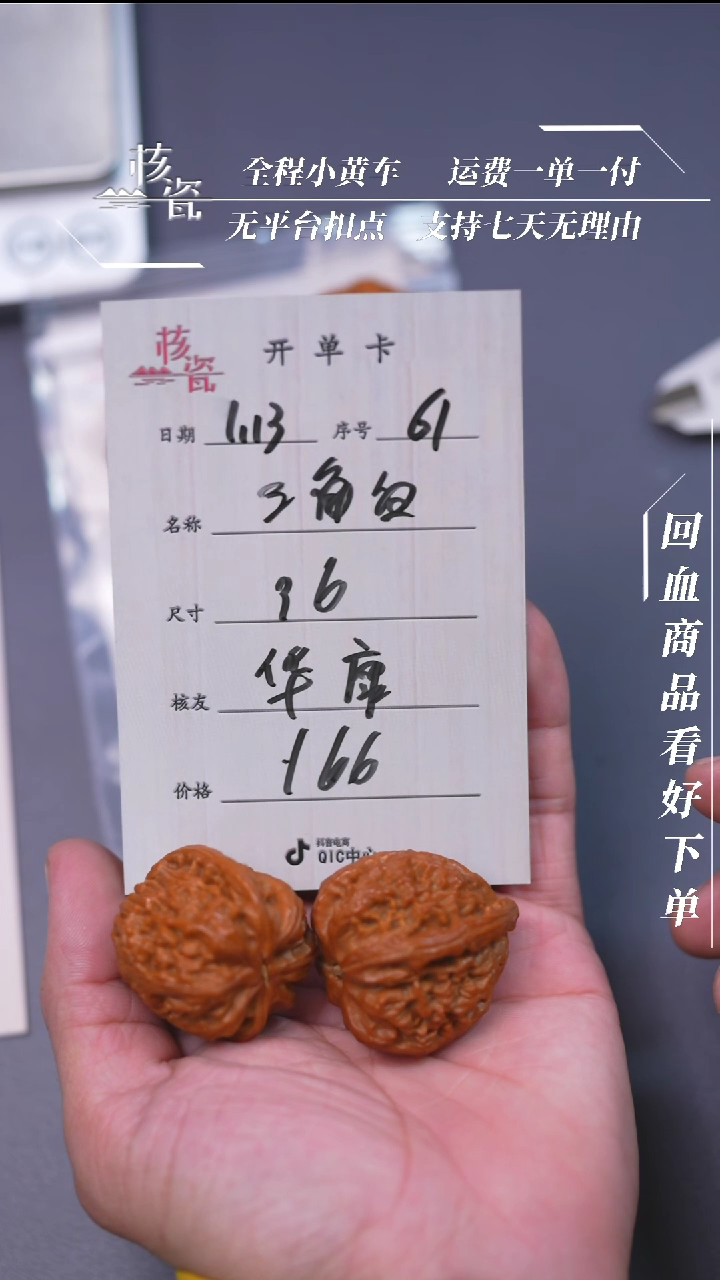 核瓷
全程小黄车 运费一单一付
无平台扣点 支持七天无理由
核瓷
开单卡
日期 1.13 序号 61
名称 三角
尺寸 36
核友 华康
价格 166
抖音电商
QIC中心
回血商品看好下单